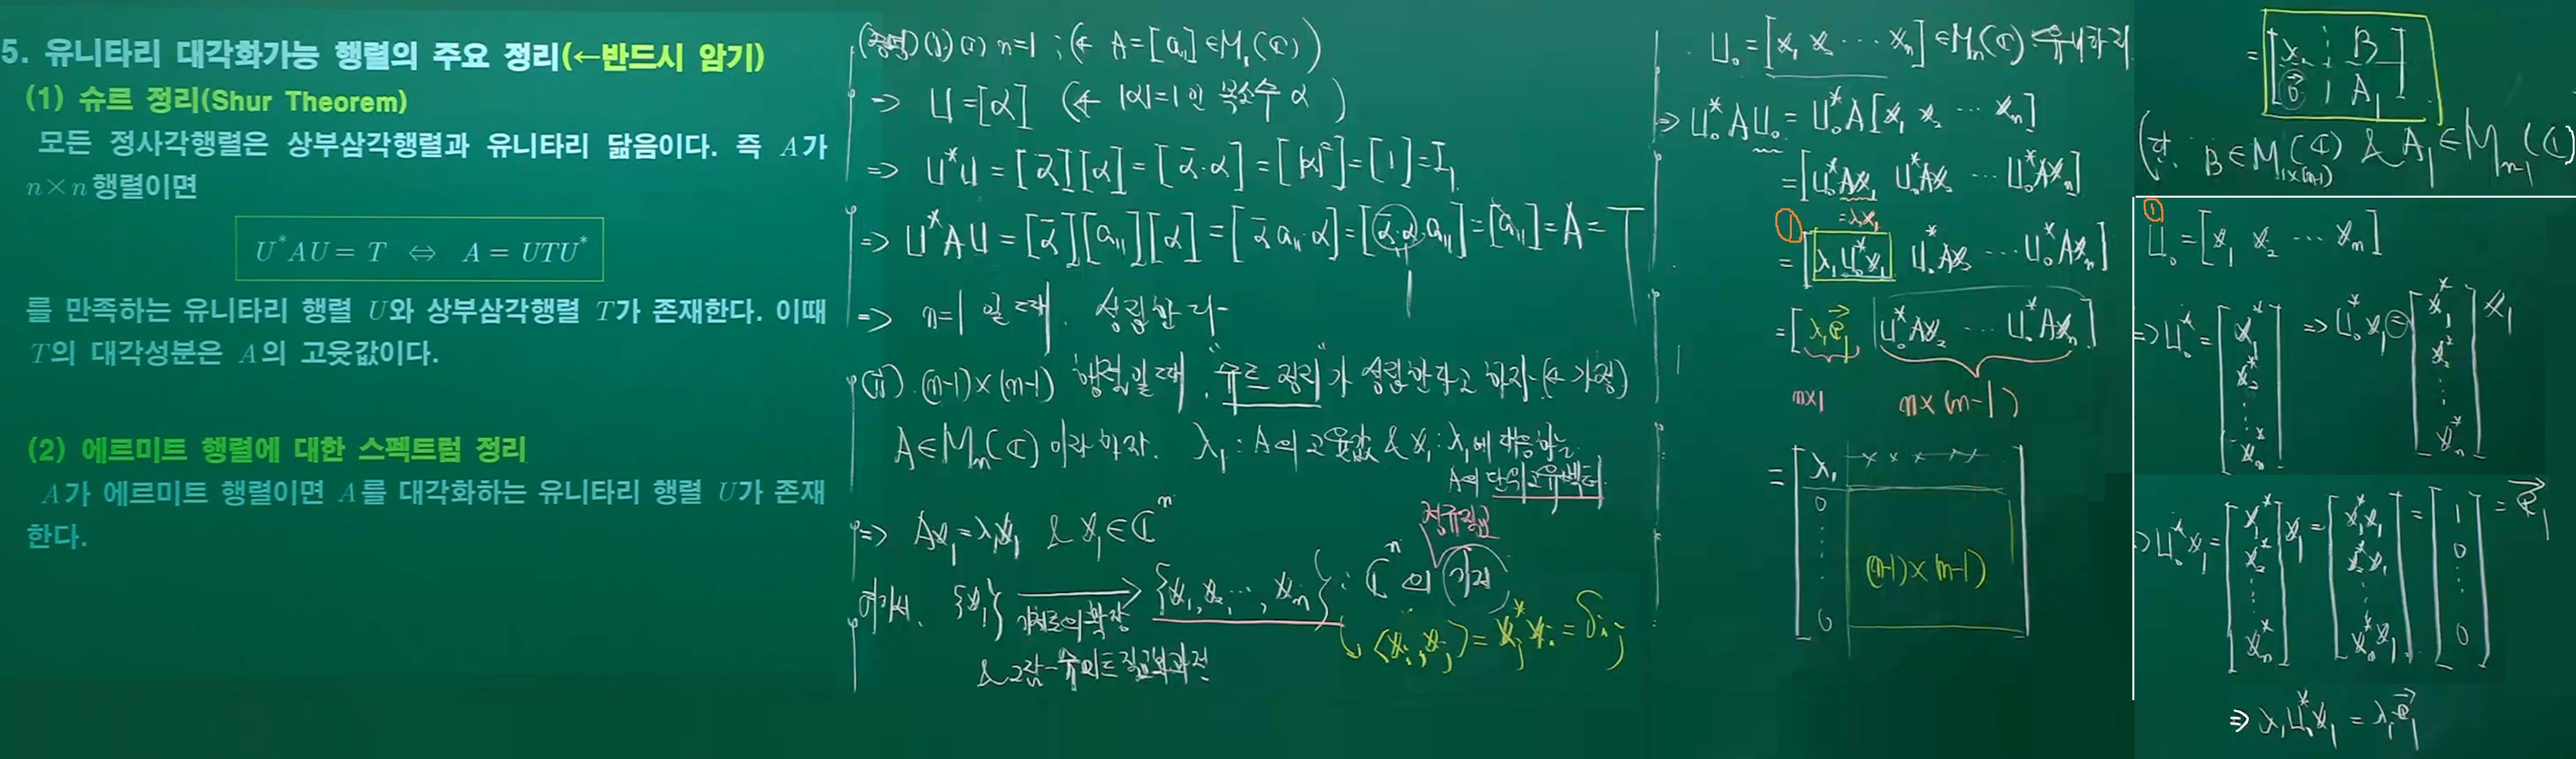 5. 유니타리 대각화가능 행렬의 주요 정리(←반드시 암기)
(1) 슈르 정리(Shur Theorem)
모든 정사각행렬은 상부삼각행렬과 유니타리 닮음이다. 즉 A가
n×n행렬이면
U*AU = T ⇔ A = UTU*
를 만족하는 유니타리 행렬 U와 상부삼각행렬 T가 존재한다. 이때
T의 대각성분은 A의 고윳값이다.
(2) 에르미트 행렬에 대한 스펙트럼 정리
A가 에르미트 행렬이면 A를 대각화하는 유니타리 행렬 U가 존재
한다.
(증명) (1). (i) n=1 ; (← A=[a₁₁]∈M₁(ℂ))
⇒ U=[α] (← |α|=1인 복소수 α)
⇒ U*U = [ᾱ][α] = [ᾱ·α] = [|α|²] = [1] = I₁
⇒ U*AU = [ᾱ][a₁₁][α] = [ᾱ a₁₁ α] = [ᾱ·α a₁₁] = [a₁₁] = A = T
1
⇒ n=1 일 때, 성립한다.
(ii). (n-1)×(n-1) 행렬일 때, "슈르 정리"가 성립한다고 하자. (← 가정)
A∈Mₙ(ℂ)이라 하자. λ₁ : A의 고윳값 & x₁ : λ₁에 대응하는
A의 단위고유벡터
⇒ Ax₁=λ₁x₁ & x₁∈ℂⁿ
정규직교
여기서, {x₁} → {x₁, x₂, ⋯, xₙ} : ℂⁿ의 기저
기저로의 확장
& 그람-슈미트 직교화 과정
↳ ⟨xᵢ, xⱼ⟩ = xⱼ*xᵢ = δᵢⱼ
U₀ = [x₁ x₂ ⋯ xₙ] ∈ Mₙ(ℂ) : 유니타리
⇒ U₀*AU₀ = U₀*A[x₁ x₂ ⋯ xₙ]
= [U₀*Ax₁ U₀*Ax₂ ⋯ U₀*Axₙ]
=λ₁x₁
①
= [λ₁U₀*x₁ U₀*Ax₂ ⋯ U₀*Axₙ]
= [λ₁e₁⃗ | U₀*Ax₂ ⋯ U₀*Axₙ]
n×1 n×(n-1)
= [λ₁ × × × × ×
0
⋮ (n-1)×(n-1)
0]
= [λ₁ B
0⃗ A₁]
(단, B∈M₁ₓ₍ₙ₋₁₎(ℂ) & A₁∈Mₙ₋₁(ℂ)
①
U₀ = [x₁ x₂ ⋯ xₙ]
⇒ U₀* = [x₁* x₂* ⋮ xₙ*] ⇒ U₀*x₁ = [x₁* x₂* ⋮ xₙ*] x₁
⇒ U₀*x₁ = [x₁* x₂* ⋮ xₙ*] x₁ = [x₁*x₁ x₂*x₁ ⋮ xₙ*x₁] = [1 0 ⋮ 0] = e₁⃗
⇒ λ₁U₀*x₁ = λ₁e₁⃗